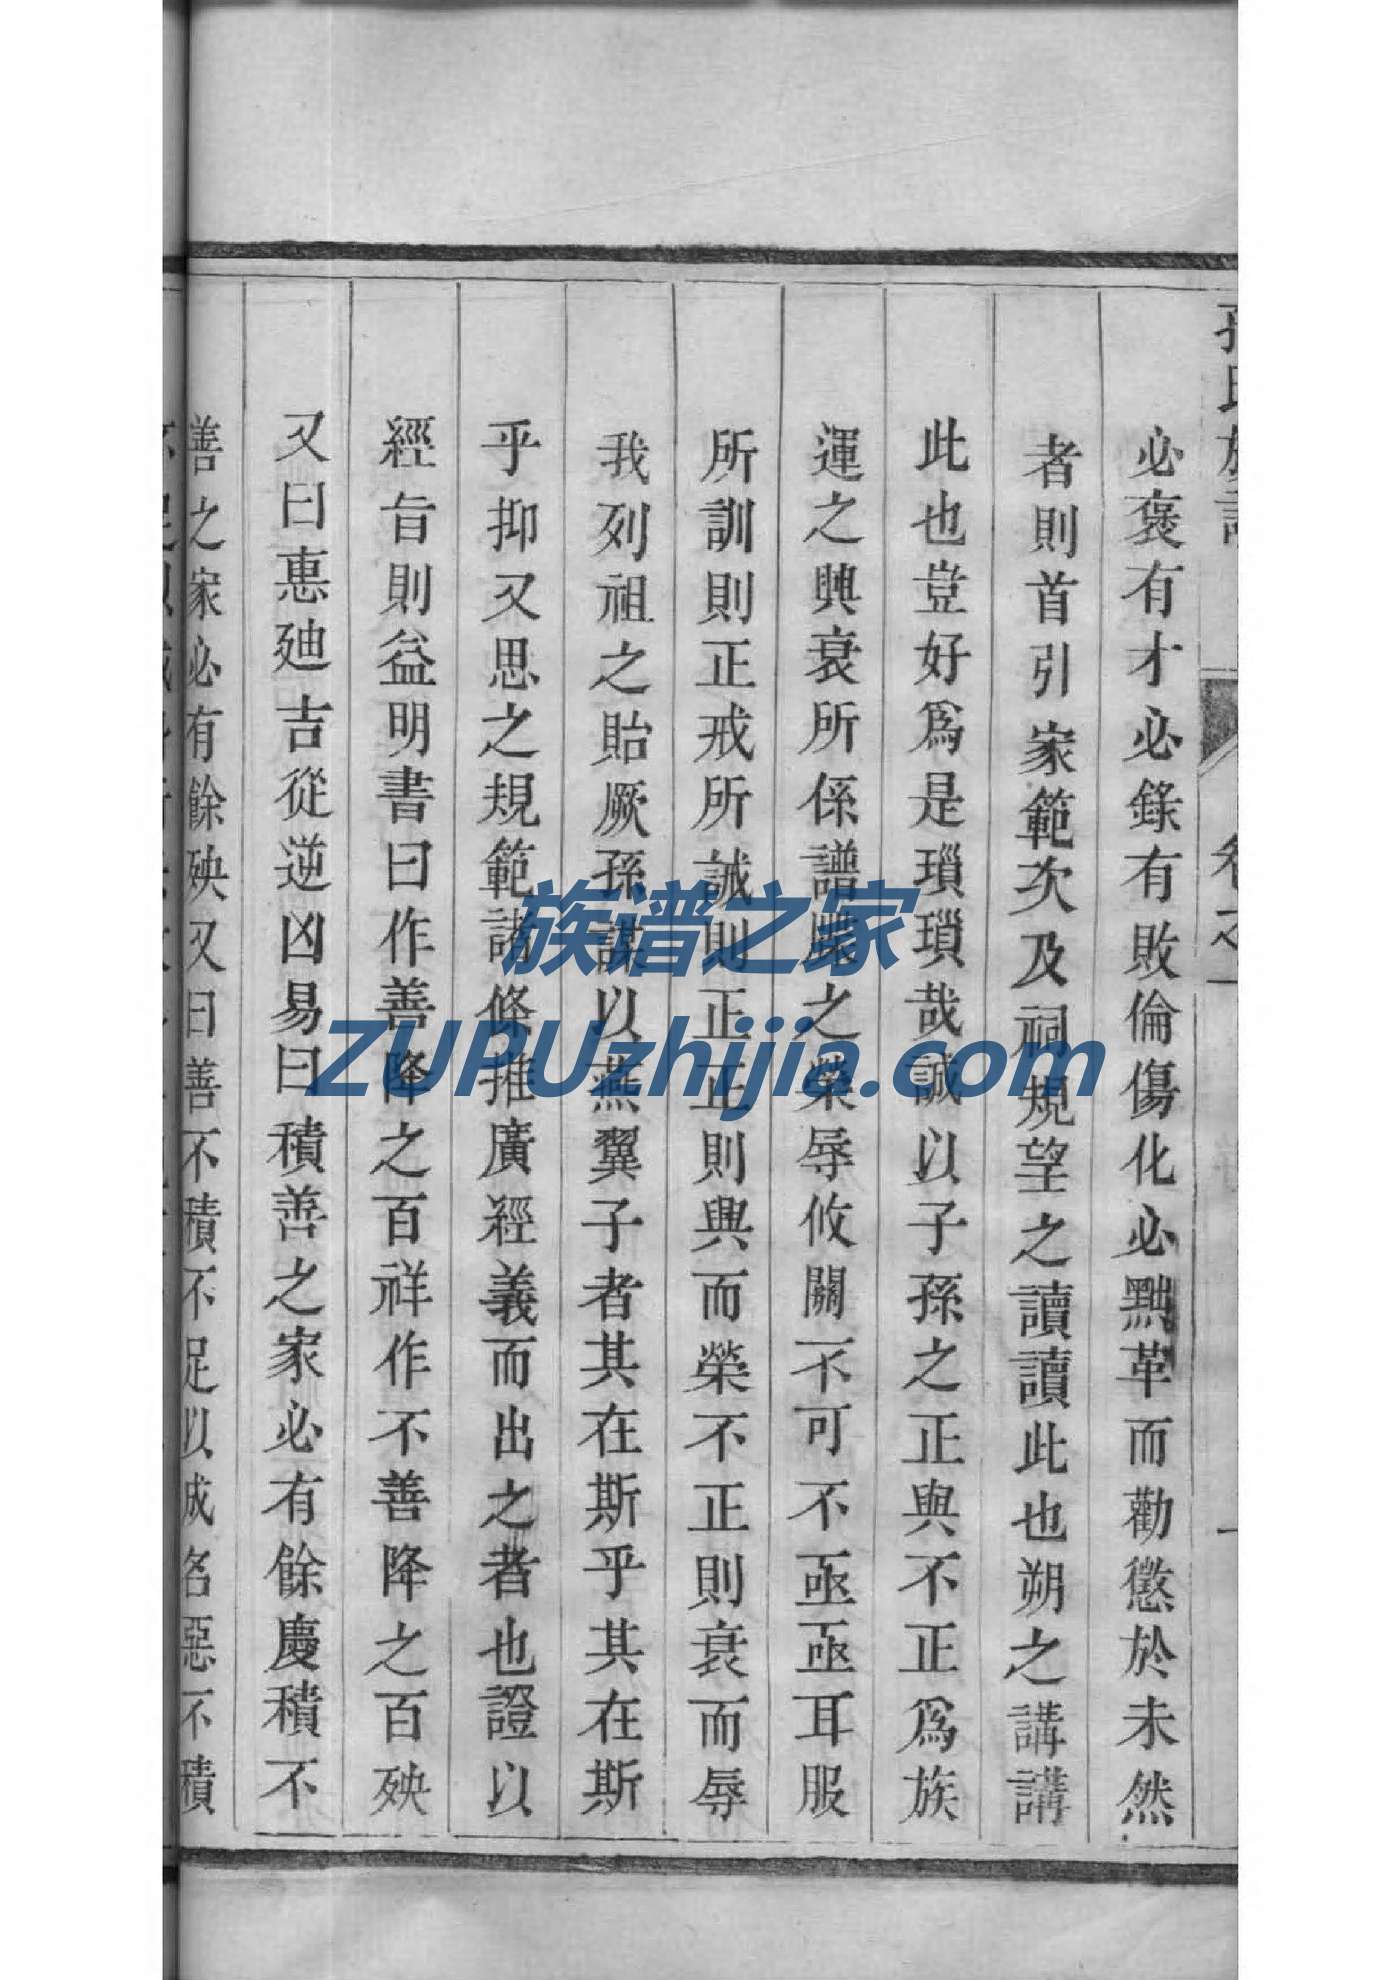 孫氏族譜 卷之一
必褒有才必錄有敗倫傷化必黜革而勸懲於未然
者則首引家範次及祠規望之讀讀此也朔之講講
此也豈好爲是瑣瑣哉誠以子孫之正與不正爲族
運之興衰所係譜牒之榮辱攸關不可不亟亟耳服
所訓則正戒所誡則正正則興而榮不正則衰而辱
我列祖之貽厥孫謀以燕翼子者其在斯乎其在斯
乎抑又思之規範諸條推廣經義而出之者也證以
經旨則益明書曰作善降之百祥作不善降之百殃
又曰惠迪吉從逆凶易曰積善之家必有餘慶積不
善之家必有餘殃又曰善不積不足以成名惡不積
族谱之家
ZUPUzhijia.com